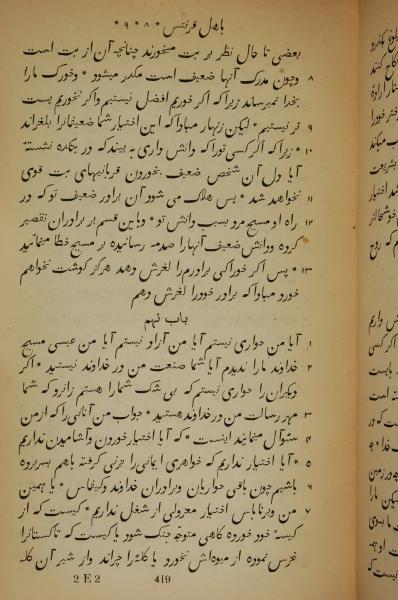 باهل قرنتس * ۸ * ۹ *
بعضی تا حال نظر بر بت میخورند چنانچه آن از بت است
۸ وچون مدرک آنها ضعیف است مکدر میشود * وخورک مارا
بخدا نمیرساند زیرا که اکر خوریم افضل نیستیم واکر نخوریم پست
۹ تر نیستیم * لیکن زنهار مبادا که این اختیار شما ضعیفانرا بلغزاند
۱۰ * زیرا که اکر کسی تورا که دانش داری به بیند که در بتکده نشستهٔ
آیا دل آن شخص ضعیف بخوردن قربانیهای بت قوی
۱۱ نخواهد شد * پس هلاک می شود آن برادر ضعیف تو که در
۱۲ راه او مسیح مرد بسبب دانش تو * وباین قسم بر برادران تقصیر
کرده ودانش ضعیف آنها را صدمه رسانیده بر مسیح خطا مینمائید
۱۳ * پس اکر خوراکی برادرم را لغزش دهد هرکز کوشت نخواهم
خورد مبادا که برادر خودرا لغزش دهم
باب نهم
۱ آیا من حواری نیستم آیا من آزاد نیستم آیا من عیسی مسیح
۲ خداوند مارا ندیدم آیا شما صنعت من در خداوند نیستید * اکر
دیکران را حواری نیستم که بی شک شمارا هستم زانرو که شما
۳ مهر رسالت من در خداوند هستید * جواب من آنانی را که از من
۴ سئوآل مینمایند اینست * که آیا اختیار خوردن وآشامیدن نداریم
۵ * آیا اختیار نداریم که خواهری ایمانی را بزنی کرفته باهم بسربرده
۶ باشیم چون باقی حواریان وبرادران خداوند وکیفاس * یا همین
۷ من وبرناباس اختیار معزولی از شغل نداریم * کیست که از
کیسهٔ خود خورده کاهی متوجّه جنک شود یا کیست که تاکستانرا
غرس نموده از میوه‌اش نخورد یا کله‌را چراند واز شیر آن کله
2 E 2 419